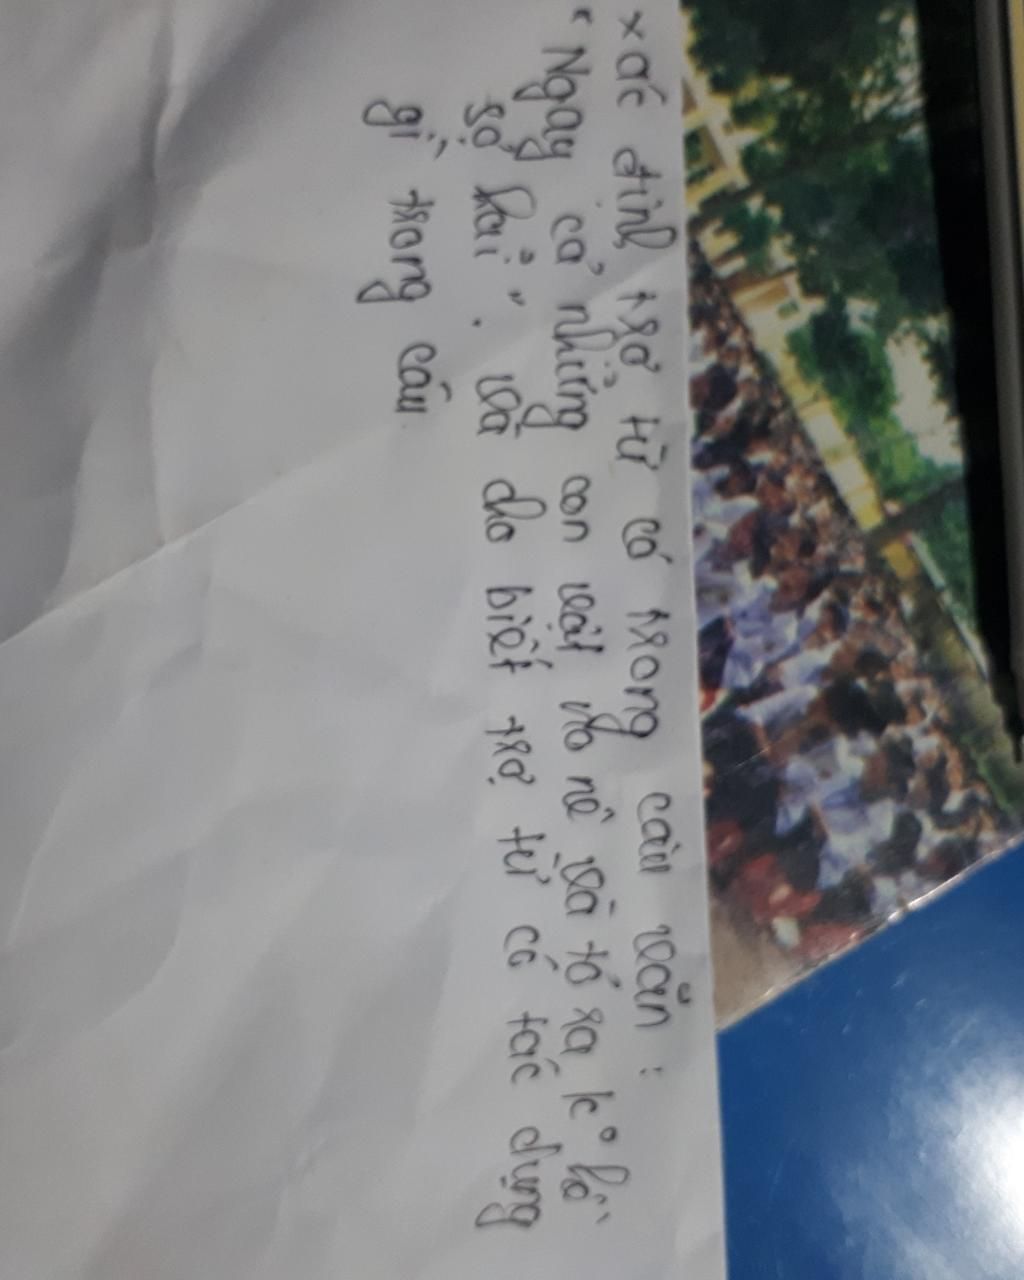 xác định trợ từ có trong câu văn :
" Ngay cả những con vật no nê và tỏ ra k° hề
sợ hãi ". Và cho biết trợ từ có tác dụng
gì trong câu